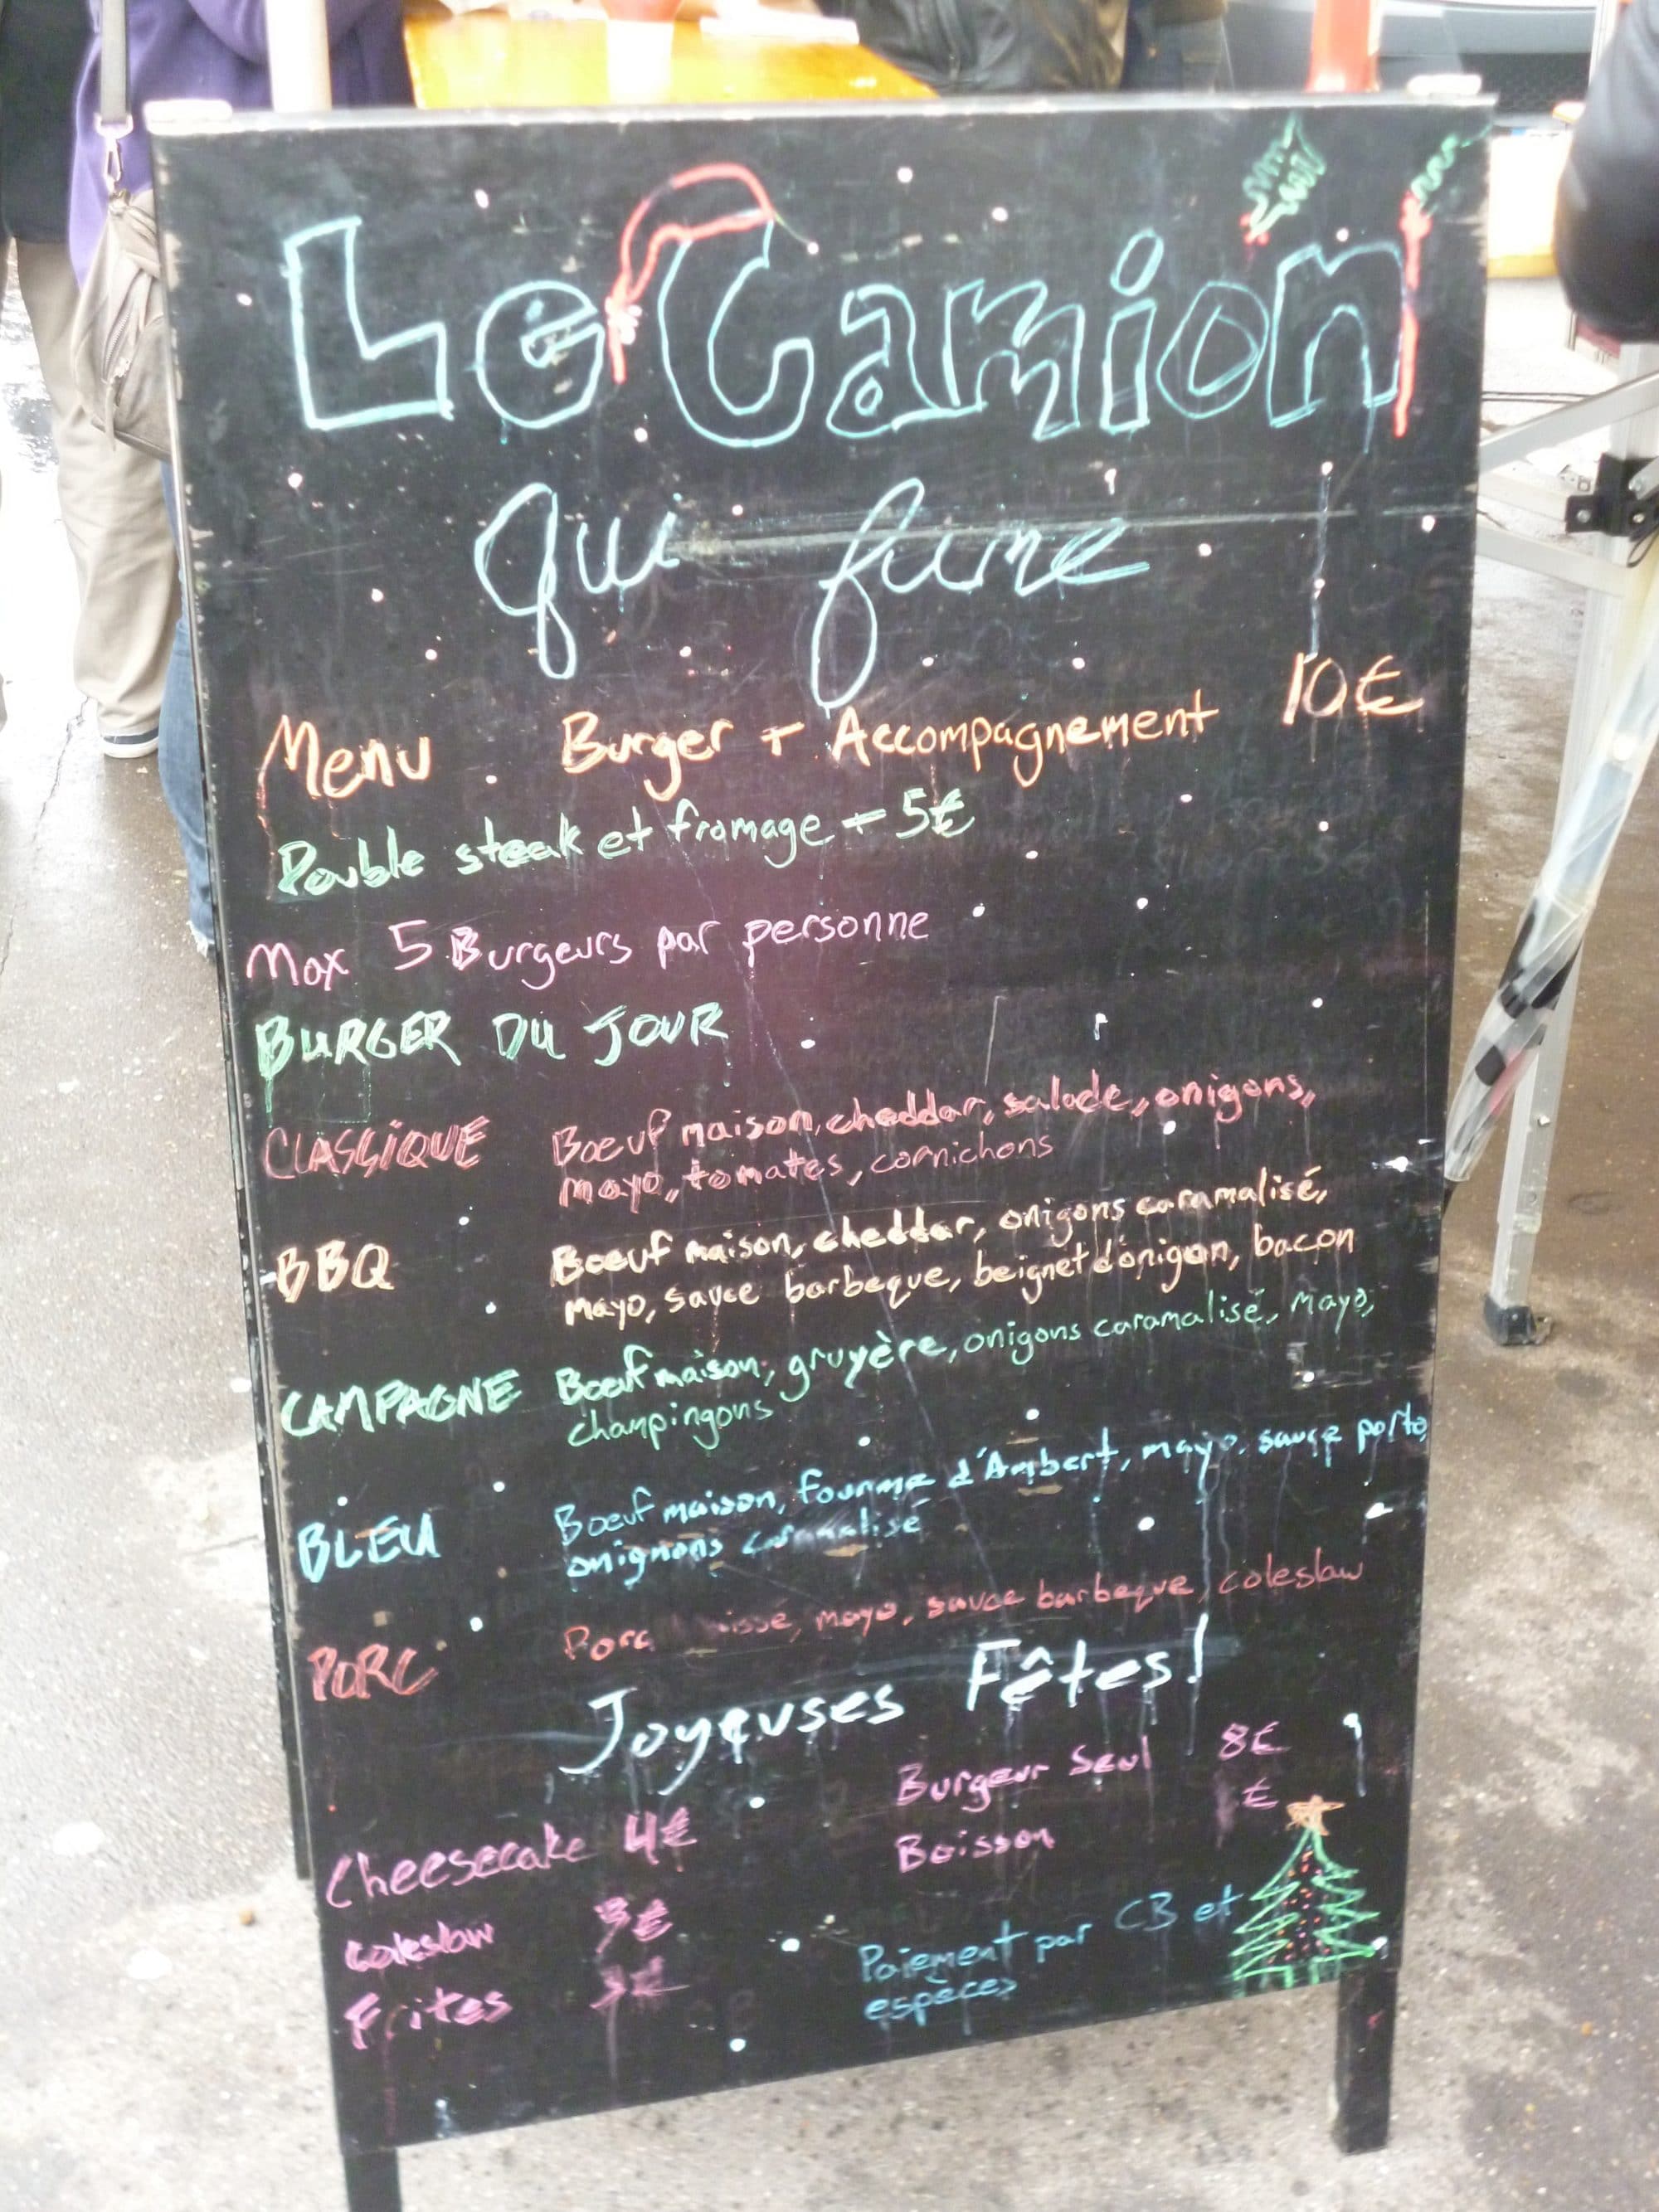 Le Camion
qui fume
Menu Burger + Accompagnement 10€
Double steak et fromage + 5€
Max 5 Burgeurs par personne
BURGER DU JOUR
CLASSIQUE Boeuf maison, cheddar, salade, onigons,
mayo, tomates, cornichons
BBQ Boeuf maison, cheddar, onigons caramalisé,
mayo, sauce barbeque, beignet d'onigon, bacon
CAMPAGNE Boeuf maison, gruyère, onigons caramalisé, mayo,
champingons
BLEU Boeuf maison, fourme d'Ambert, mayo, sauce porto,
onignons caramalisé
PORC Porc mayo, sauce barbeque, coleslaw
Joyeuses Fêtes!
Burgeur Seul 8€
Boisson €
Cheesecake 4€
Coleslaw 3€
Frites 3€
Paiement par CB et
espèces